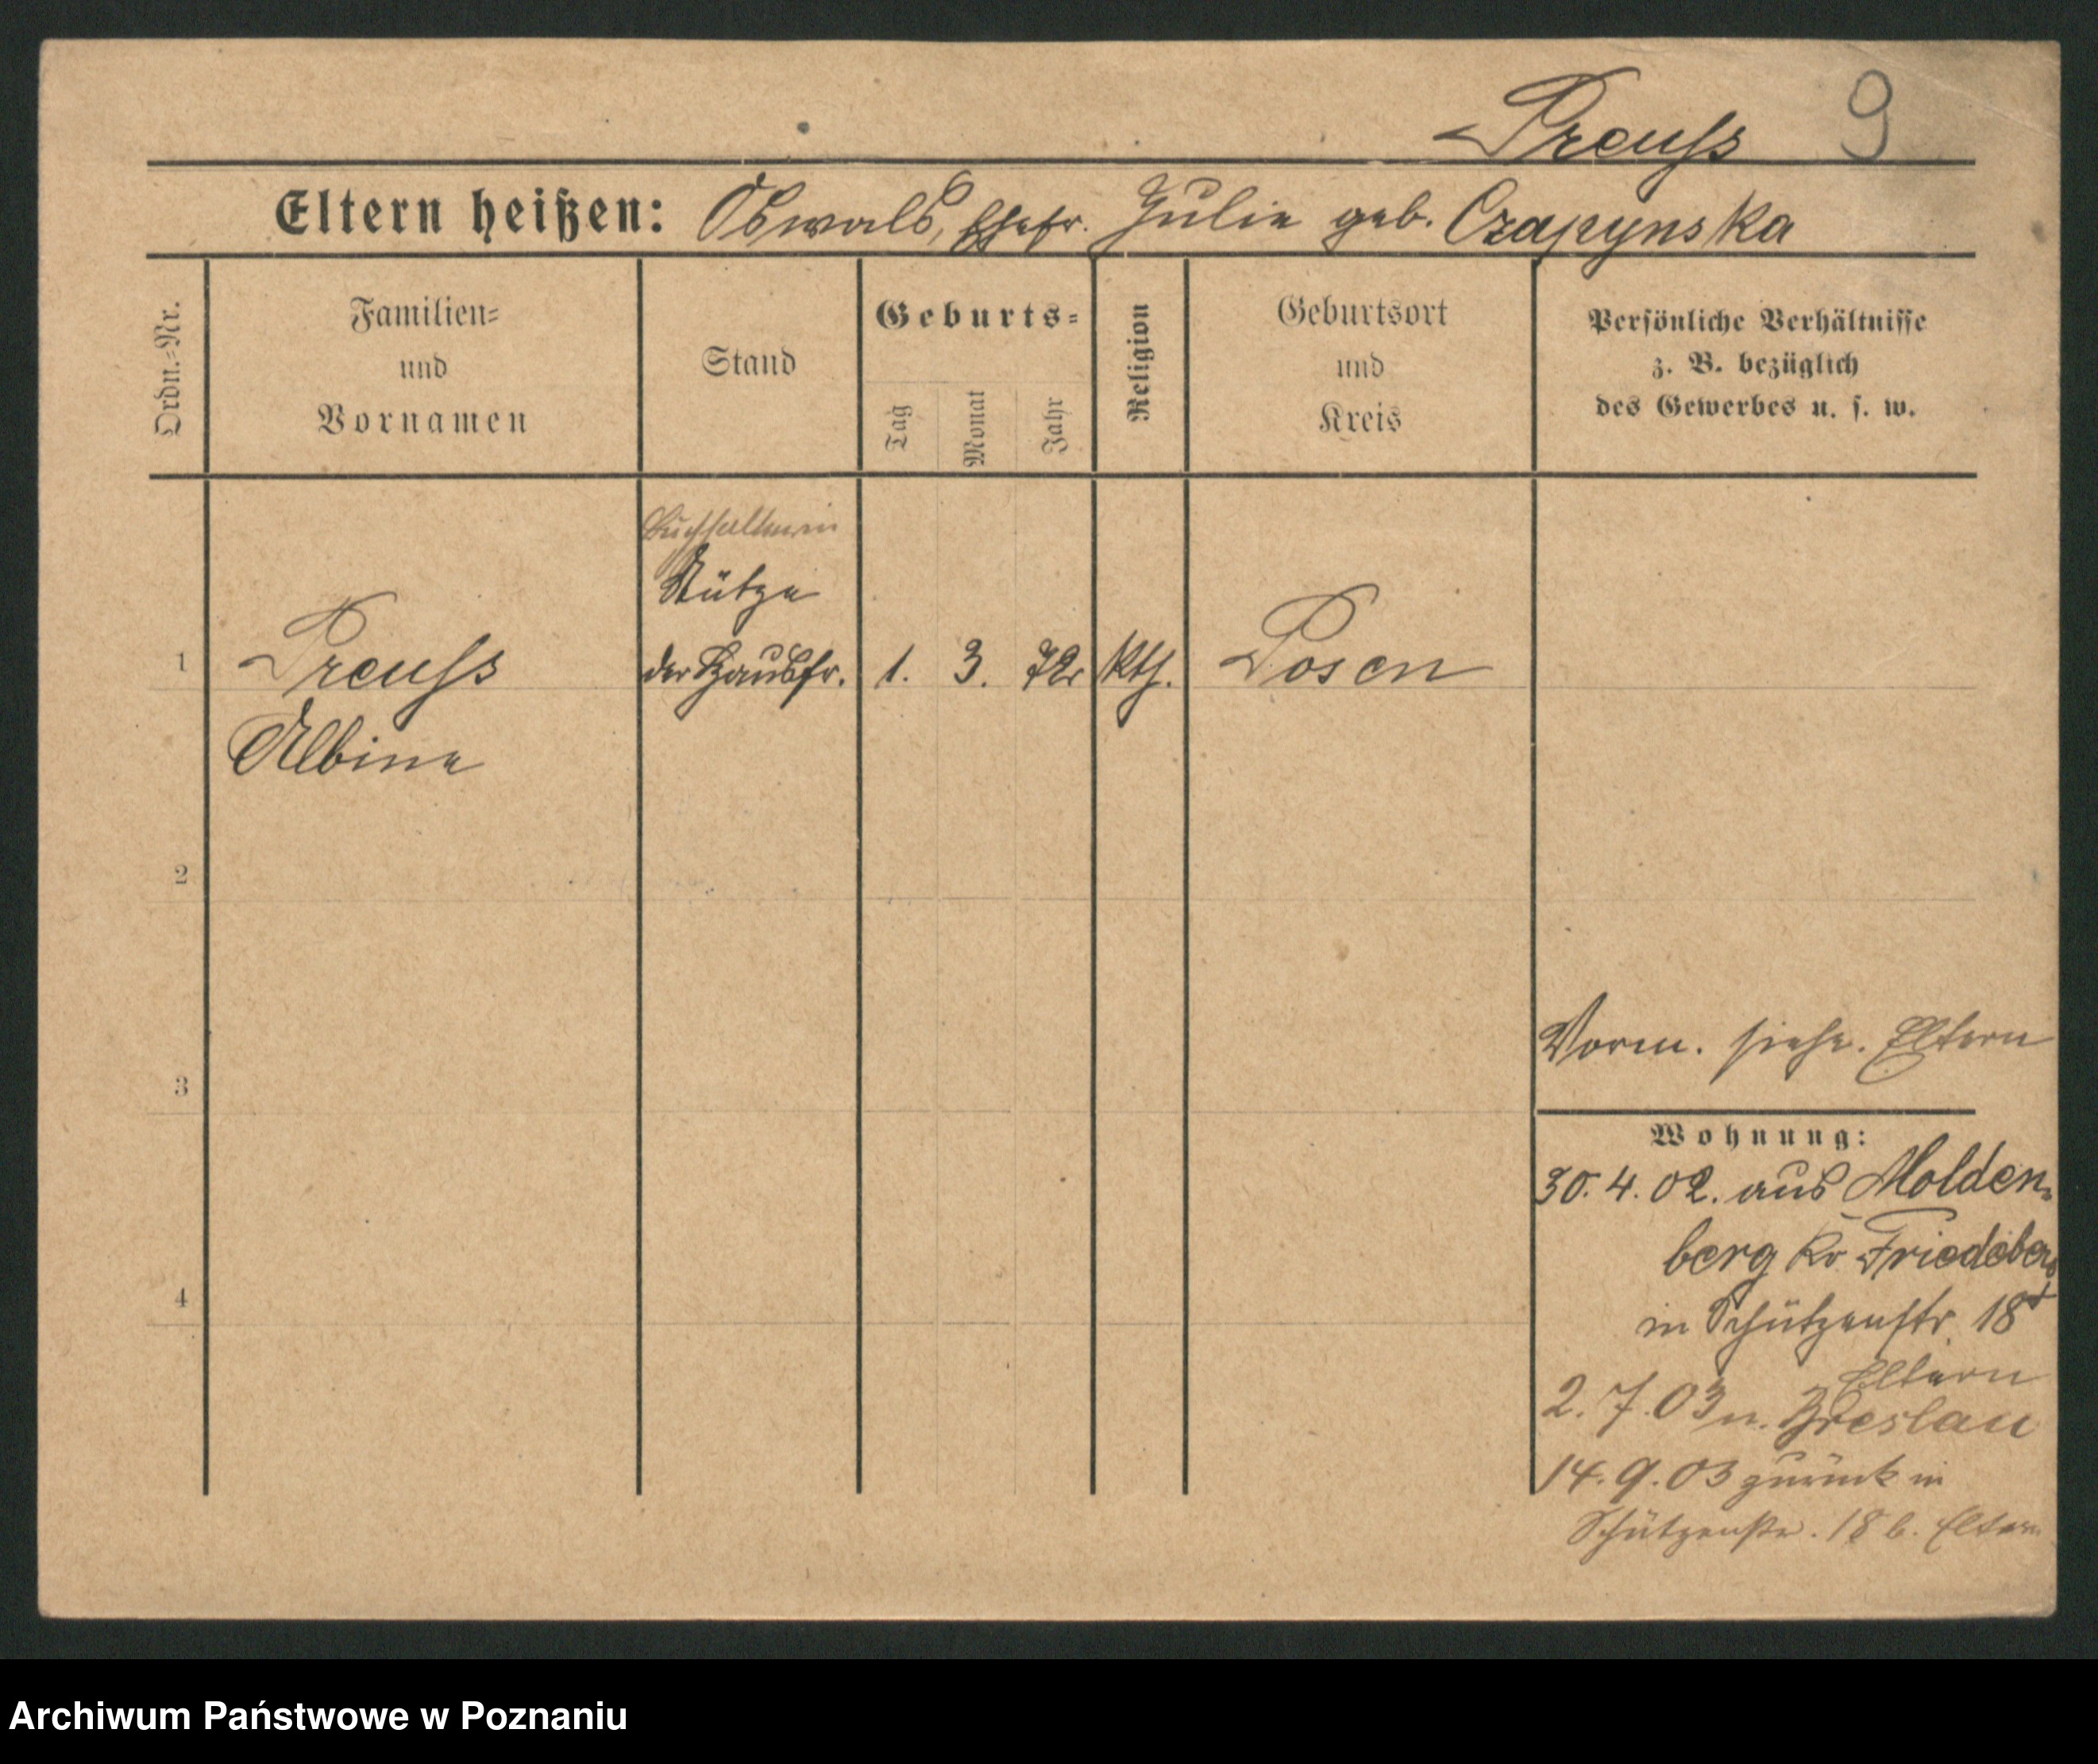 Preuss 9
Eltern heißen: Oswald, Ehefr. Julie geb. Czapynska
Ordn.=Nr.
Familien=
und
Vornamen
Stand
Geburts=
Tag
Monat
Jahr
Religion
Geburtsort
und
Kreis
Persönliche Verhältnisse
z. B. bezüglich
des Gewerbes u. s. w.
Buchhalterin
Stütze
1 Preuss der Hausfr. 1. 3. 72 kth. Posen
Albine
2
Vorm. siehe. Eltern
3
Wohnung:
30. 4. 02. aus Molden-
berg Kr Friedeberg
4
in Schützenstr. 18
Eltern
2. 7. 03 n. Breslau
14. 9. 03 zurück in
Schützenstr. 18 b. Eltern
Archiwum Państwowe w Poznaniu